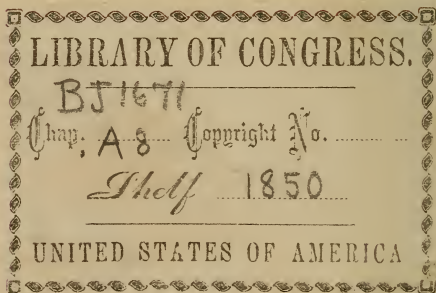 LIBRARY OF CONGRESS.
BJ1671
Chap. .A8 Copyright No. ............
Shelf 1850
UNITED STATES OF AMERICA